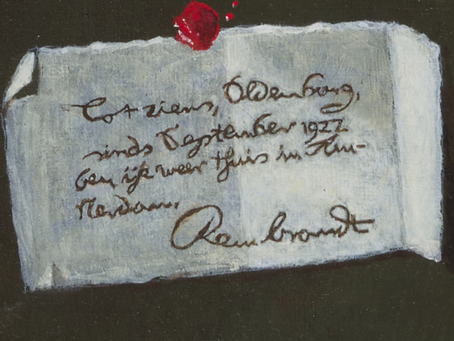 Tot ziens, Oldenborg,
sinds September 1922
ben ijk weer thuis in Am-
sterdam.
Rembrandt